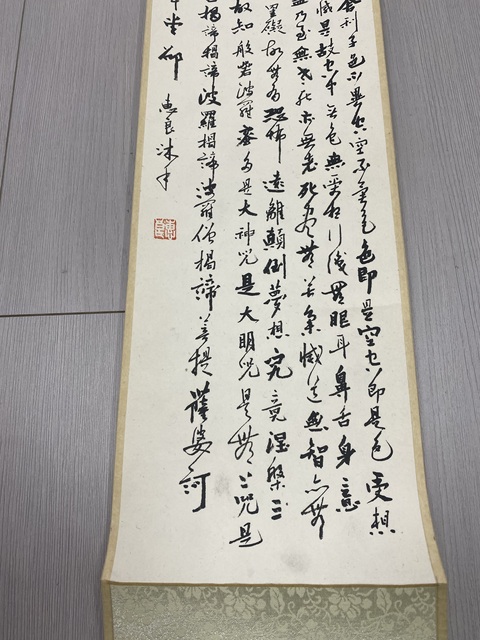 舍利子色不異空空不異色色即是空空即是色受想
減是故空中無色無受想行識無眼耳鼻舌身意
盡乃至無老死亦無老死盡無苦集滅道無智亦無
罣礙故無有恐怖遠離顛倒夢想究竟涅槃三
故知般若波羅蜜多是大神咒是大明咒是無上咒是
揭諦揭諦波羅揭諦波羅僧揭諦菩提薩婆訶
惠良沐手